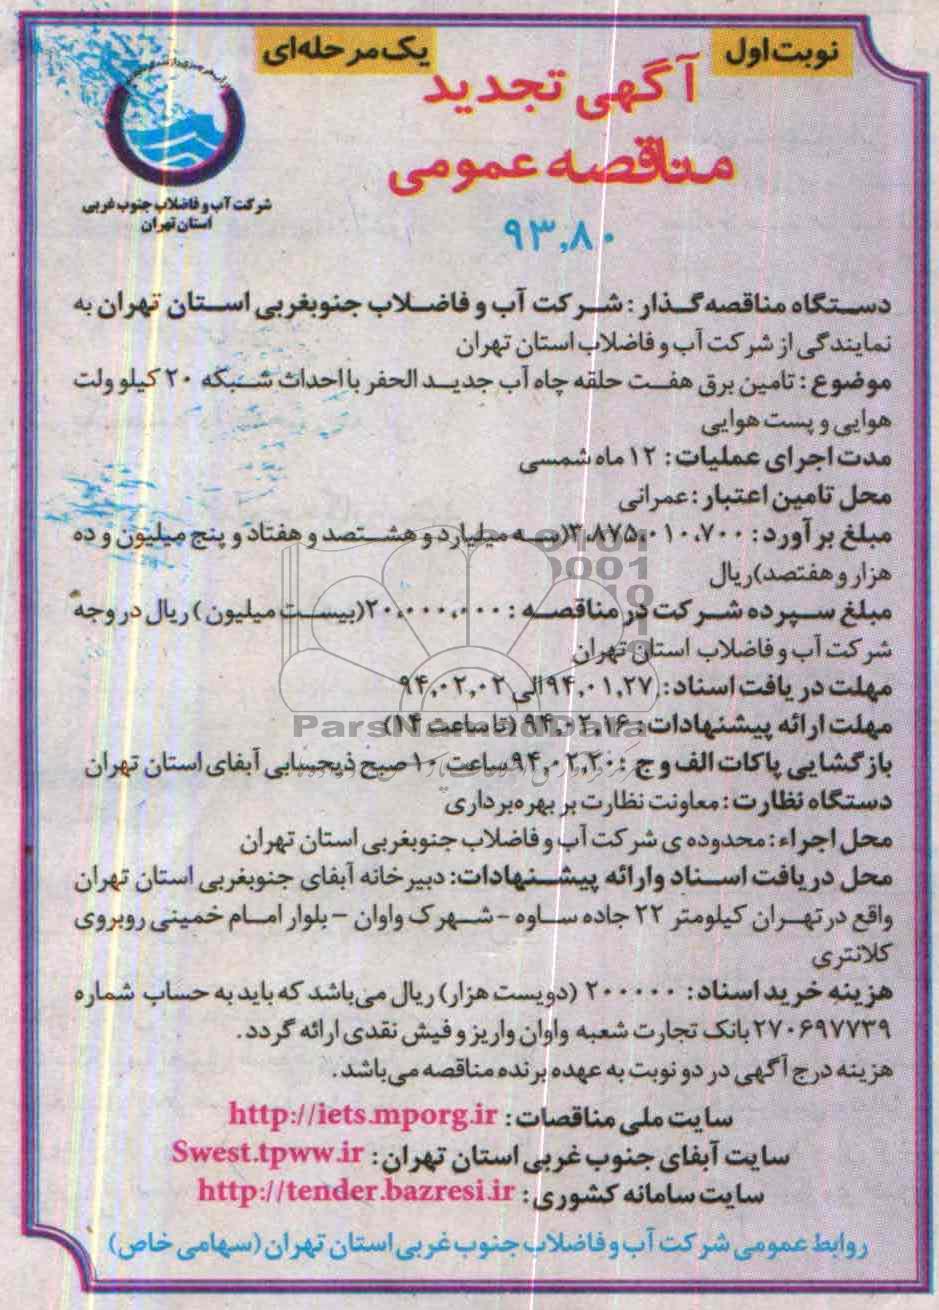 نوبت اول
یک مرحله‌ای
آگهی تجدید
مناقصه عمومی
۹۳،۸۰
شرکت آب و فاضلاب جنوب غربی
استان تهران
دستگاه مناقصه‌گذار : شرکت آب و فاضلاب جنوبغربی استان تهران به
نمایندگی از شرکت آب و فاضلاب استان تهران
موضوع : تامین برق هفت حلقه چاه آب جدید الحفر با احداث شبکه ۲۰ کیلو ولت
هوایی و پست هوایی
مدت اجرای عملیات : ۱۲ ماه شمسی
محل تامین اعتبار : عمرانی
مبلغ برآورد : ۳،۸۷۵،۰۱۰،۷۰۰(سه میلیارد و هشتصد و هفتاد و پنج میلیون و ده
هزار و هفتصد)ریال
مبلغ سپرده شرکت در مناقصه : ۲۰،۰۰۰،۰۰۰(بیست میلیون ) ریال در وجه
شرکت آب و فاضلاب استان تهران
مهلت دریافت اسناد : ۹۴،۰۱،۲۷ الی ۹۴،۰۲،۰۲
مهلت ارائه پیشنهادات : ۹۴،۰۲،۱۶ (تا ساعت ۱۴)
ParsNamadData
بازگشایی پاکات الف و ج : ۹۴،۰۲،۲۰ ساعت ۱۰ صبح ذیحسابی آبفای استان تهران
دستگاه نظارت : معاونت نظارت بر بهره‌برداری
محل اجراء : محدوده ی شرکت آب و فاضلاب جنوبغربی استان تهران
محل دریافت اسناد وارائه پیشنهادات: دبیرخانه آبفای جنوبغربی استان تهران
واقع در تهران کیلومتر ۲۲ جاده ساوه - شهرک واوان – بلوار امام خمینی روبروی
کلانتری
هزینه خرید اسناد: ۲۰۰۰۰۰ (دویست هزار) ریال می‌باشد که باید به حساب شماره
۲۷۰۶۹۷۷۳۹ بانک تجارت شعبه واوان واریز و فیش نقدی ارائه گردد .
هزینه درج آگهی در دو نوبت به عهده برنده مناقصه می‌باشد.
سایت ملی مناقصات : http://iets.mporg.ir
سایت آبفای جنوب غربی استان تهران : Swest.tpww.ir
سایت سامانه کشوری : http://tender.bazresi.ir
روابط عمومی شرکت آب و فاضلاب جنوب غربی استان تهران (سهامی خاص)